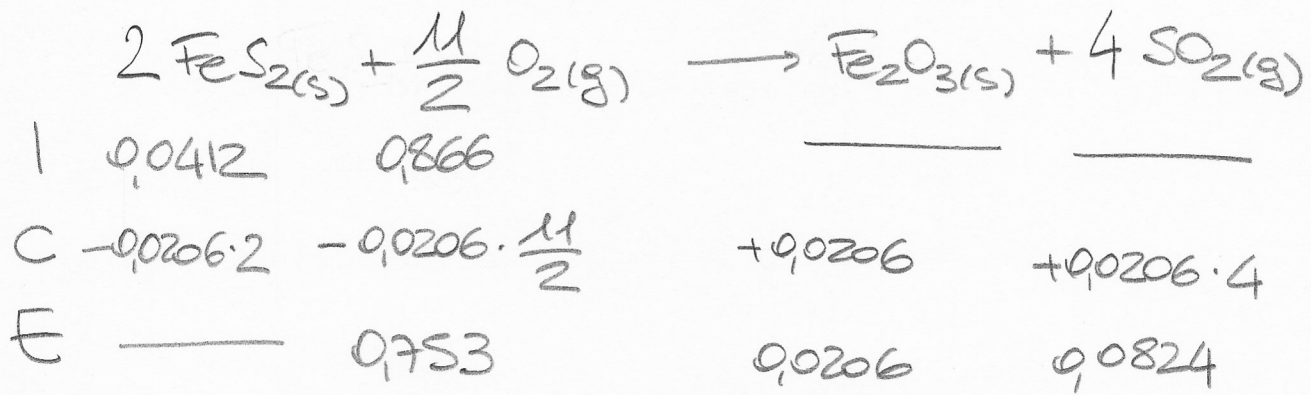 2 FeS₂(s) + 11/2 O₂(g) ⟶ Fe₂O₃(s) + 4 SO₂(g)
I 0,0412 0,866 — —
C -0,0206·2 -0,0206·11/2 +0,0206 +0,0206·4
E — 0,753 0,0206 0,0824